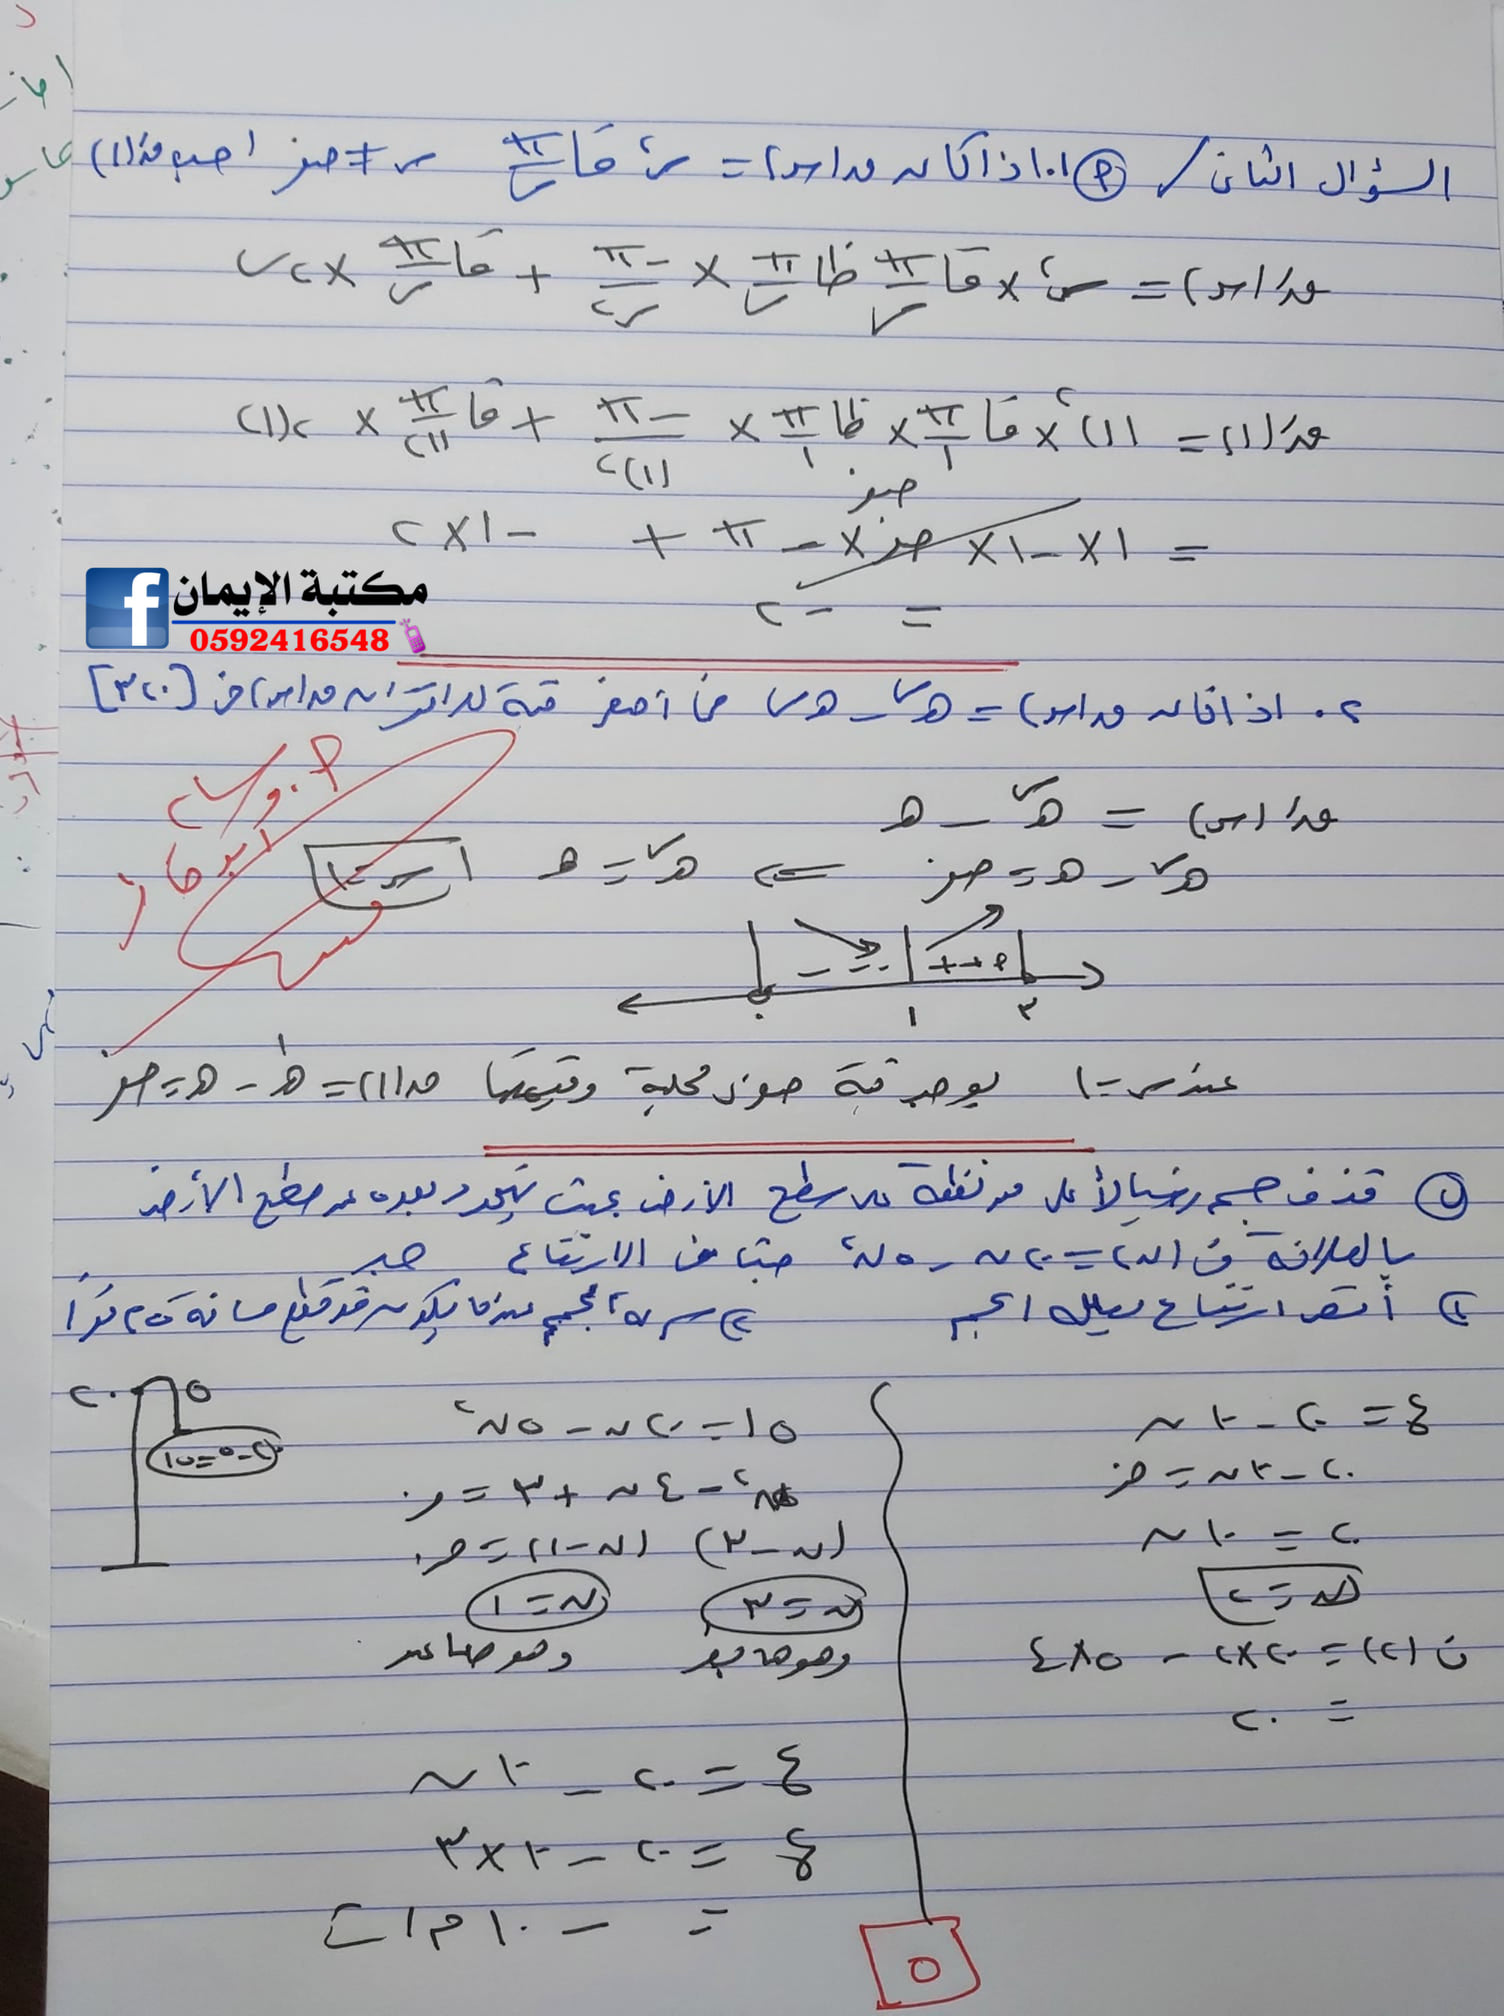 السؤال الثاني / (أ) ١. اذا كان ق(س) = س² قا π/س ، س ≠ صفر احسب قَ(١)
قَ(س) = س² × قا π/س ظا π/س × -π/س² + قا π/س × ٢س
قَ(١) = (١)² × قا π/١ × ظا π/١ × -π/(١)² + قا π/(١) × ٢(١)
صفر
= ١ × -١ × صفر × -π + -١ × ٢
= -٢
مكتبة الإيمان
0592416548
٢. اذا كان ق(س) = هـ^س - هـ س فما أصغر قيمة للاقتران ق(س) في [٠،٣]
قَ(س) = هـ^س - هـ
هـ^س - هـ = صفر ⇐ هـ^س = هـ س = ١
- - - +++
٠ ١ ٣
عند س = ١ يوجد قيمة صغرى محلية وقيمتها ق(١) = هـ^١ - هـ = صفر
(ب) قذف جسم رأسياً لأعلى من نقطة على سطح الأرض بحيث يتحدد بعده عن سطح الأرض
بالعلاقة ف(ن) = ٢٠ن - ٥ن² حيث ف الارتفاع جد
١) أقصى ارتفاع يصله الجسم
٢) سرعة الجسم عندما يكون قد قطع مسافة ٢٥ متراً
ع = ٢٠ - ١٠ن
٢٠ - ١٠ن = صفر
٢٠ = ١٠ن
ن = ٢
ف(٢) = ٢٠×٢ - ٥×٤
= ٢٠
٢٠ ٥
٢٠ - ٥ = ١٥
١٥ = ٢٠ن - ٥ن²
ن² - ٤ن + ٣ = صفر
(ن - ٣) (ن - ١) = صفر
ن = ٣ ن = ١
وهو هابط وهو صاعد
ع = ٢٠ - ١٠ن
ع = ٢٠ - ١٠×٣
= -١٠ م/ث
٥